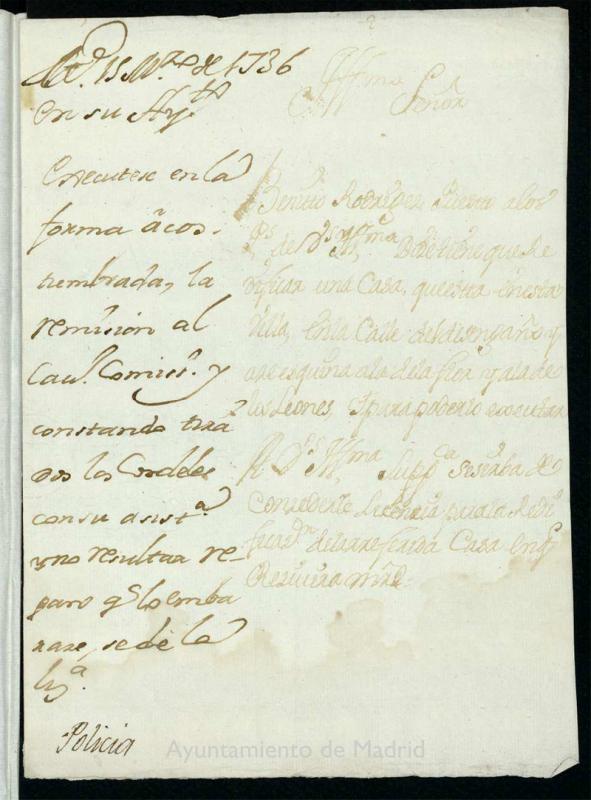 M.d 15 Mzo de 1736
en su Ayto
Executese en la
forma acos-
tumbrada, la
remision al
Cauo. Comisso. y
constando tira
dos los Cordeles
con su asista.
y no resultar re-
paro q lo emba
raze, se dè la
liza.
Policia
Illma
Señor
Benito Rodriguez, Puesto a los
Ps. de V.S. Illma Dize tiene que Re
dificar una Casa, que esta en esta
Villa, en la Calle del desengaño y
aze esquina a la de la flor y a la de
los Leones, Y para poderlo executar
A V.S. Illma Suppca. se sirba de
Concederle Licencia para la Redi
ficazn. de la referida Casa en q
Reziuira mrd.
Ayuntamiento de Madrid